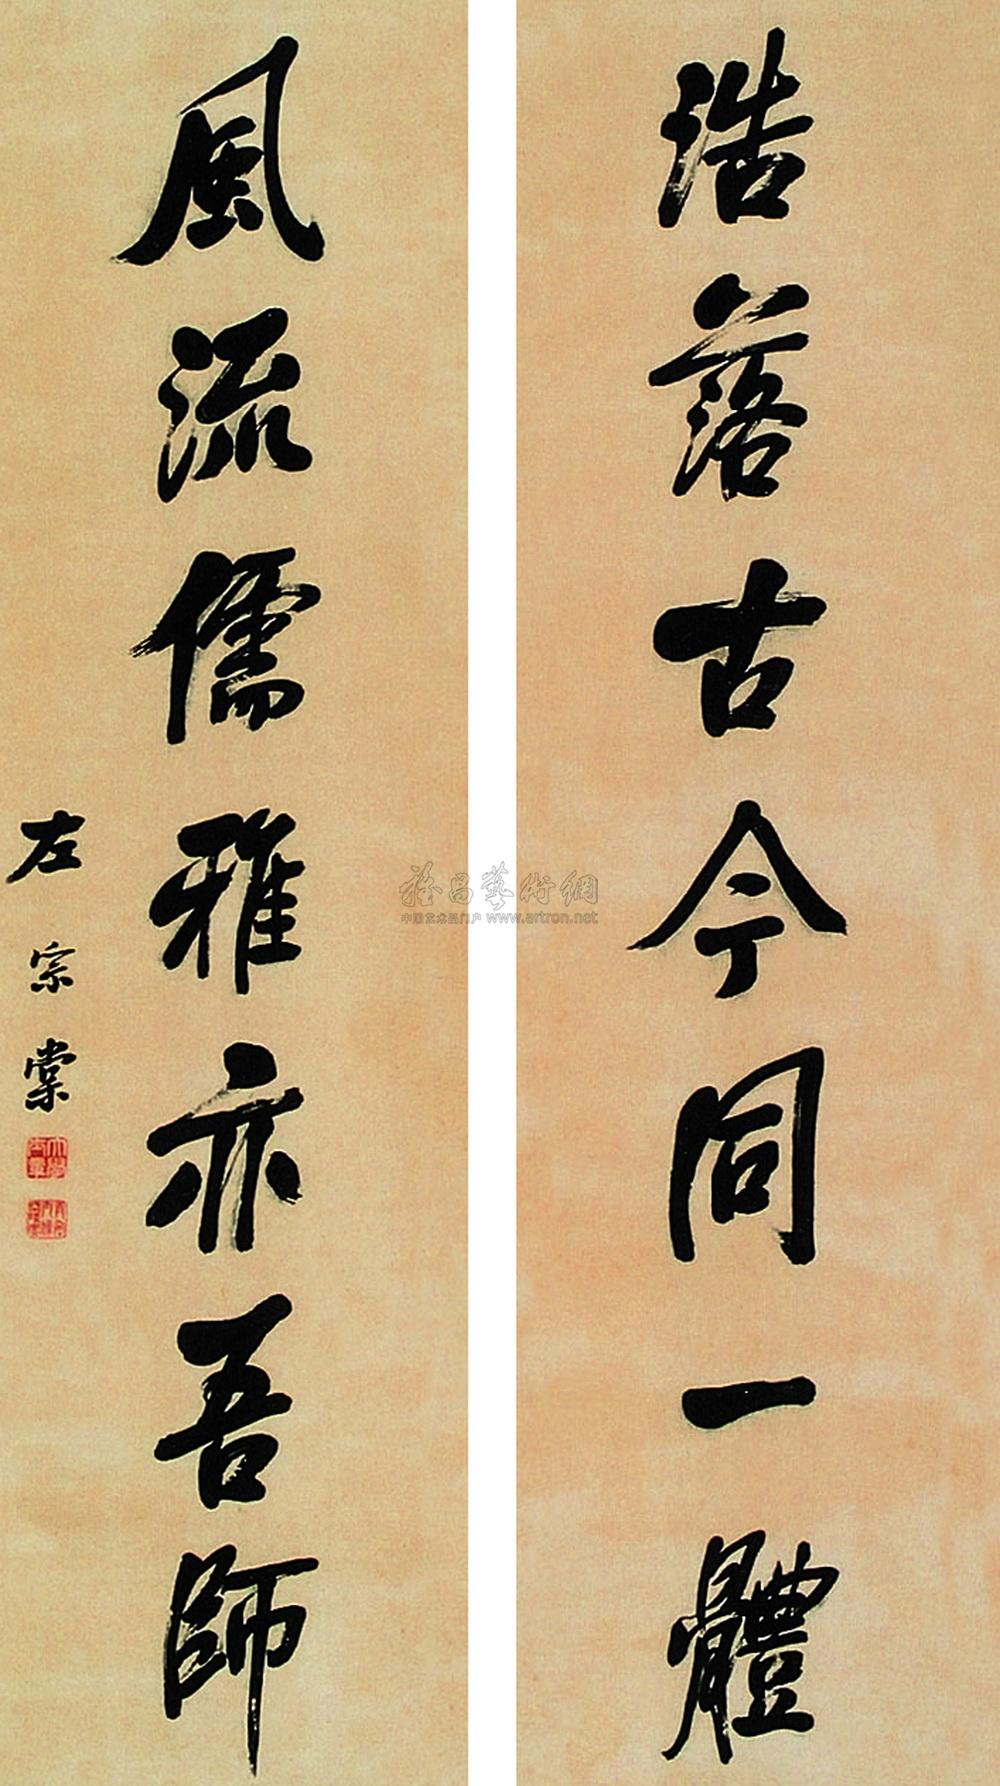 浩落古今同一體
風流儒雅亦吾師
左宗棠
雅昌藝術網
中国艺术品门户 www.artron.net